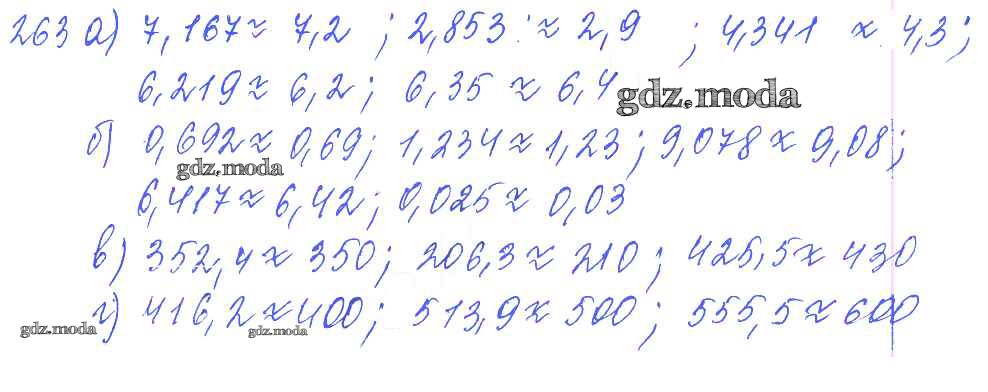 263 а) 7,167 ≈ 7,2 ; 2,853 ≈ 2,9 ; 4,341 ≈ 4,3 ;
6,219 ≈ 6,2 ; 6,35 ≈ 6,4
gdz.moda
б) 0,692 ≈ 0,69 ; 1,234 ≈ 1,23 ; 9,078 ≈ 9,08 ;
gdz.moda
6,417 ≈ 6,42 ; 0,025 ≈ 0,03
в) 352,4 ≈ 350 ; 206,3 ≈ 210 ; 425,5 ≈ 430
г) 416,2 ≈ 400 ; 513,9 ≈ 500 ; 555,5 ≈ 600
gdz.moda gdz.moda